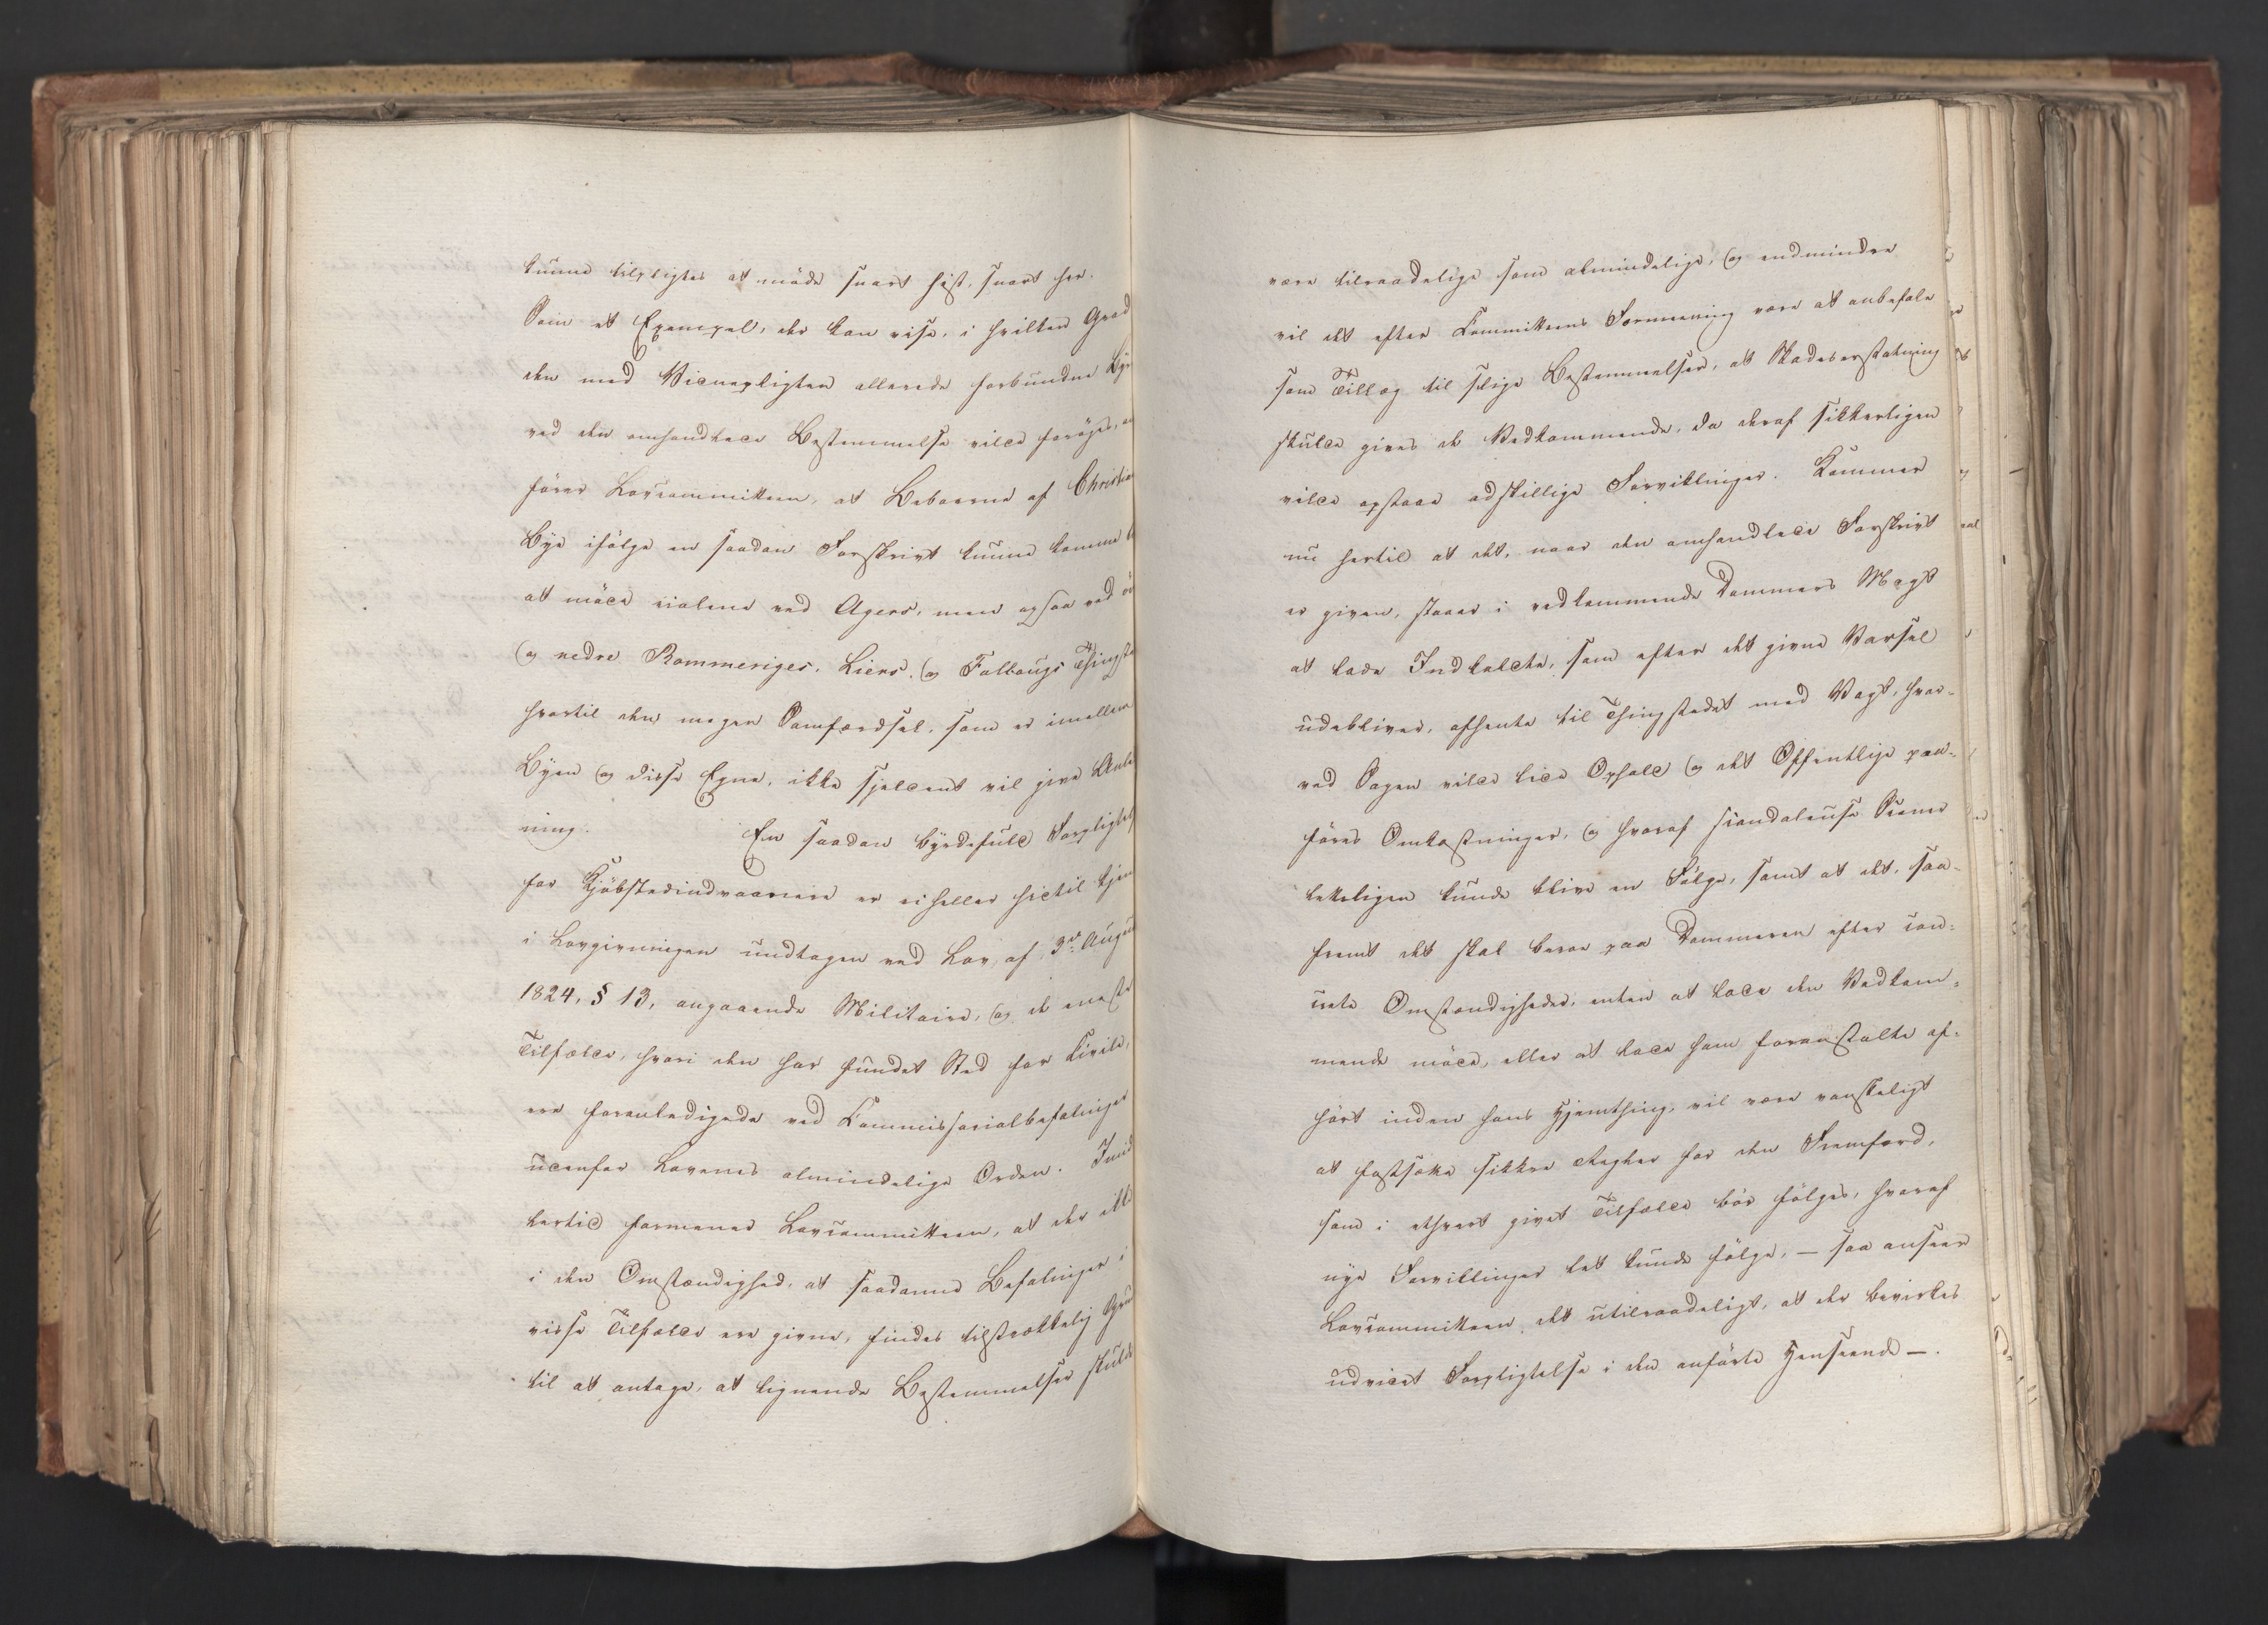 kunne tilpligtes at möde snart hist, snart her.
Som et Exempel, der kan vise, i hvilken Grad
den med Vidnepligten allerede forbundne Byr
ved den omhandlede Bestemmelse vilde foröges, an
förer Lovcommitteen, at Beboerne af Christia
Bye ifölge en saadan Forskrivt kunne komme
at möde ei alene ved Agers, men ogsaa ved öv
og nedre Rommeriges, Liers, og Follougs Thingste
hvortil den megen Samfærdsel, som er imellem
Byen og disse Egne, ikke sjeldent vil give Anle
ning. En saadan byrdefuld Forpligtels
for Kjöbstedindvaanere er ei heller hidtil kjen
i Lovgivningen undtagen ved Lov af 3die Augus
1824, § 13, angaaende Militaire, og de eneste
Tilfælde, hvori den har fundet Sted for Civile,
ere foranledigede ved Commissorialbefalinger
udenfor Lovenes almindelige Orden. Imid
lertid formener Lovcommitteen, at der ikke
i den Omstændighed, at saadanne Befalinger i
visse Tilfælde ere givne, findes tilstrækkelig Gru
til at antage, at lignende Bestemmelser skulde
være tilraadelige som almindelige, og endmindre
vil det efter Committeens Formeening være at anbefale
som Tillæg til slige Bestemmelser, at Skadeserstatning
skulde gives de Vedkommende, da deraf sikkerligen
vilde opstaae adskillige Forviklinger. Kommer
nu hertil at det, naar den omhandlede Forskrivt
er given, staaer i vedkommende Dommers Magt
at lade Indkaldte, som efter det givne Varsel
udebliver, afhente til Thingstedet med Vagt, hvor-
ved Sagen vilde lide Ophold og det Offentlige paa-
föres Omkostninger, og hvoraf scandaleuse Scener
letteligen kunde blive en Fölge, samt at det, saa-
fremt det skal beroe paa Dommeren efter con-
crete Omstændigheder, enten at lade den Vedkom-
mende möde, eller at lade ham foranstalte af-
hört inden hans Hjemthing, vil være vanskeligt
at fastsætte sikkre Regler for den Fremfærd,
som i ethvert givet Tilfælde bör fölges, hvoraf
nye Forviklinger let kunde fölge, — saa anseer
Lovcommitteen det utilraadeligt, at der bevirkes
udvidet Forpligtelse i den anförte Henseende —.